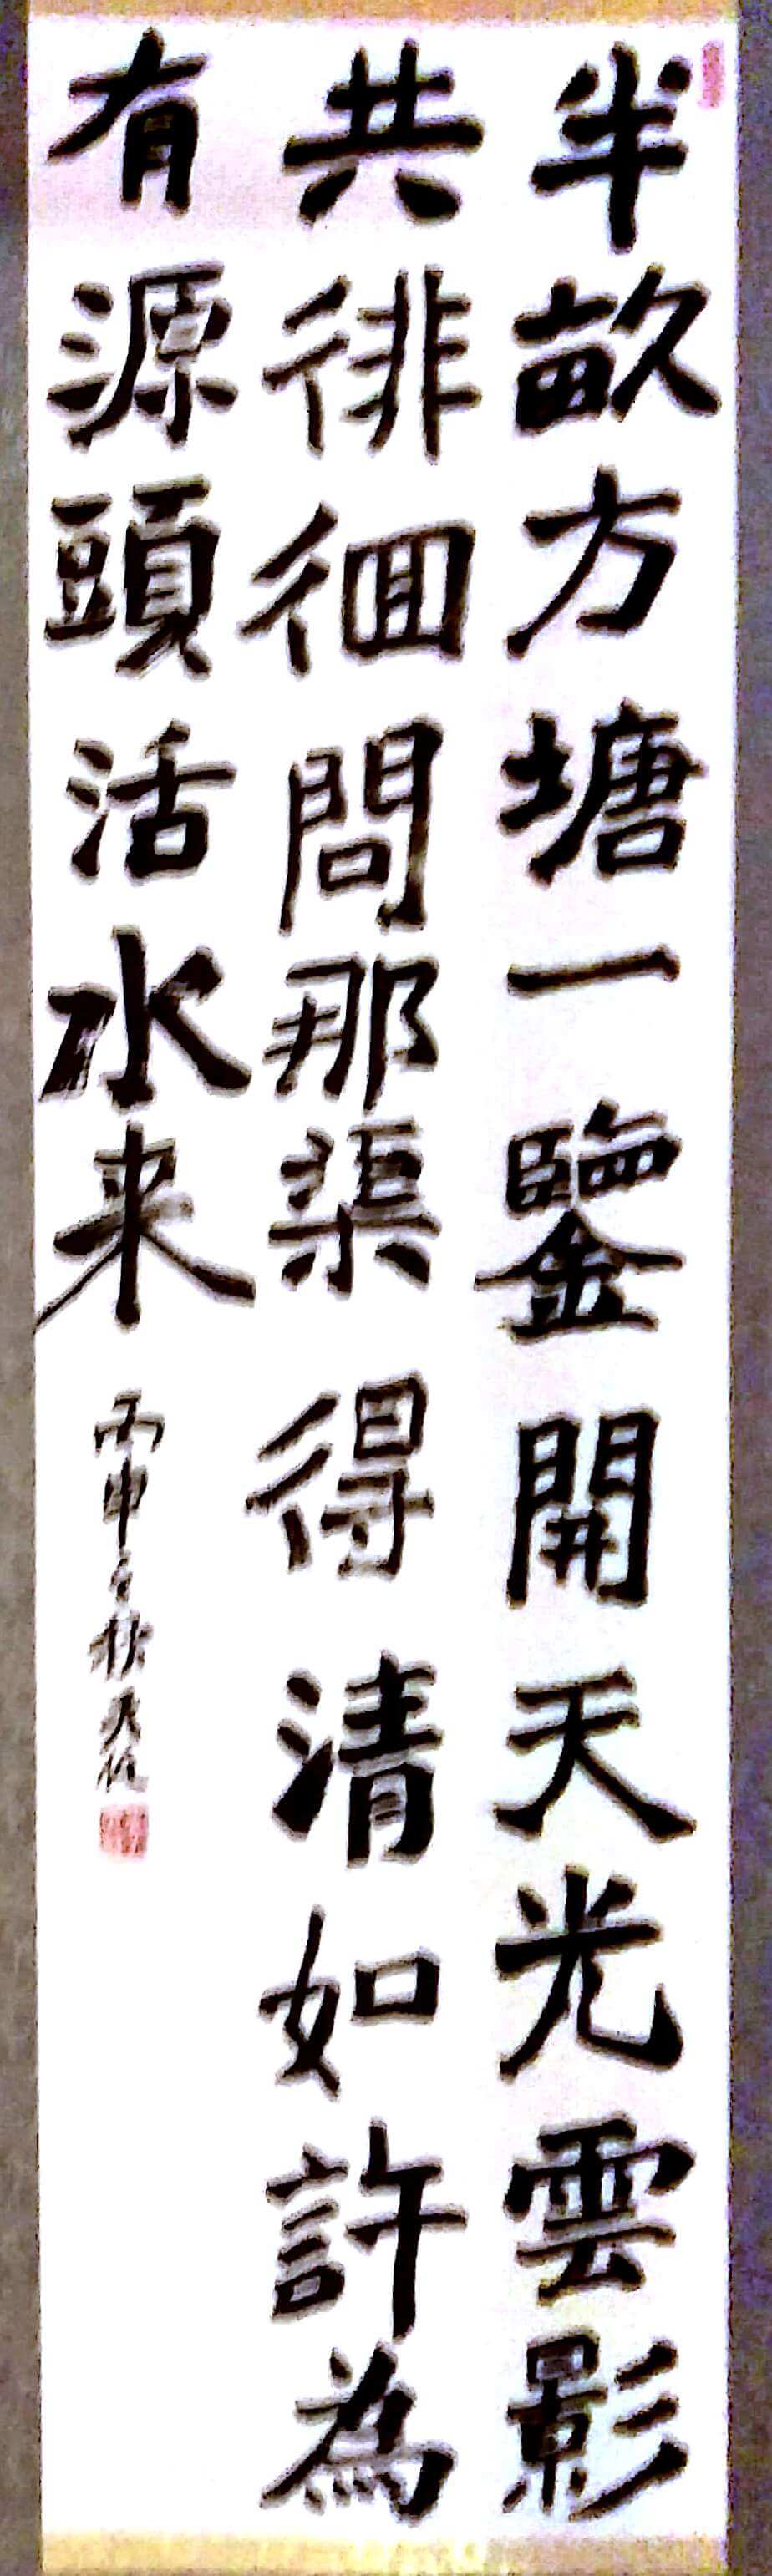 半畝方塘一鑒開天光雲影
共徘徊問那渠得清如許為
有源頭活水来
丙申